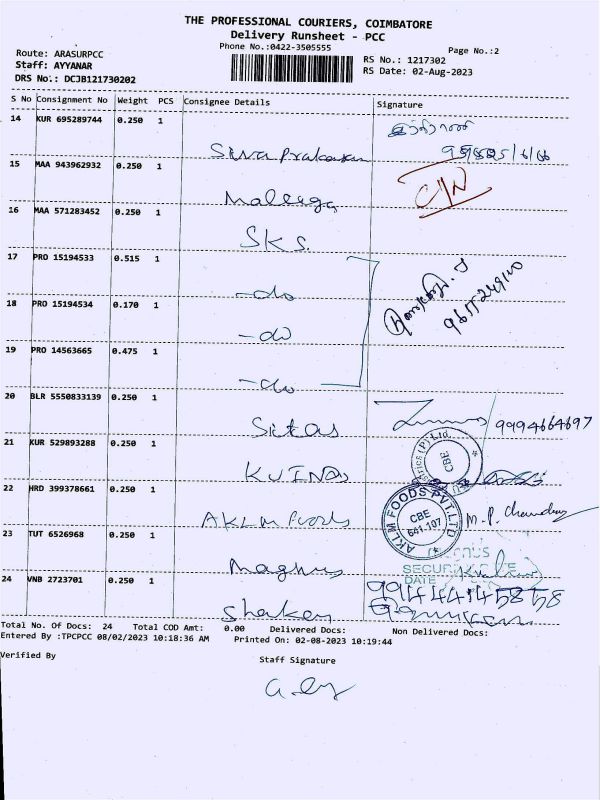 THE PROFESSIONAL COURIERS, COIMBATORE
Delivery Runsheet - PCC
Phone No.:0422-3505555
Page No.:2
Route: ARASURPCC
Staff: AYYANAR
DRS No.: DCJB121730202
RS No.: 1217302
RS Date: 02-Aug-2023
S No Consignment No Weight PCS Consignee Details Signature
14 KUR 695289744 0.250 1
Sivaprakasam
15 MAA 943962932 0.250 1
C/N
16 MAA 571283452 0.250 1
SKS.
17 PRO 15194533 0.515 1
-do
18 PRO 15194534 0.170 1
-do
19 PRO 14563665 0.475 1
-do
20 BLR 5550833139 0.250 1
9994664697
21 KUR 529893288 0.250 1
CBE
22 HRD 399378661 0.250 1
AKLM Foods
AKLM FOODS PVT.LTD
CBE
641-107
M.P.
23 TUT 6526968 0.250 1
SECUR
DATE
24 VNB 2723701 0.250 1
Total No. Of Docs: 24 Total COD Amt: 0.00 Delivered Docs: Non Delivered Docs:
Entered By :TPCPCC 08/02/2023 10:18:36 AM Printed On: 02-08-2023 10:19:44
Verified By
Staff Signature